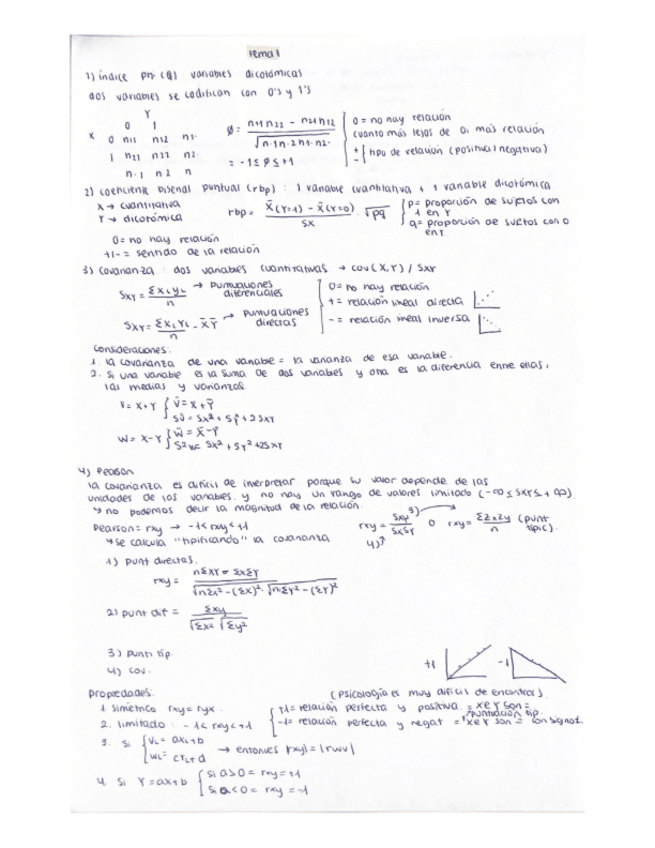 tema 1
1) índice phi (ϕ) variables dicotómicas
dos variables se codifican con 0's y 1's
Y
0 1
X 0 n11 n12 n1·
1 n21 n22 n2·
n·1 n·2 n
ϕ = n11n22 - n21n12 / √n·1n·2n1·n2·
= -1≤ϕ≤+1
0 = no hay relación
cuanto más lejos de 0, más relación
+ - } tipo de relación (positiva/negativa)
2) coeficiente biserial puntual (rbp): 1 variable cuantitativa + 1 variable dicotómica
X → cuantitativa
Y → dicotómica
rbp = X̄(Y=1) - X̄(Y=0) / SX · √pq
p = proporción de sujetos con
1 en Y
q = proporción de sujetos con 0
en Y.
0 = no hay relación
+/- = sentido de la relación
3) Covarianza: dos variables cuantitativas → cov(X,Y) / Sxy
Sxy = Σxiyi / n → puntuaciones
diferenciales
SXY = ΣXiYi / n - X̄Ȳ → puntuaciones
directas
0 = no hay relación
+ = relación lineal directa
- = relación lineal inversa
Consideraciones:
1. la covarianza de una variable = la varianza de esa variable.
2. Si una variable es la suma de dos variables y otra es la diferencia entre ellas,
las medias y varianzas
V = X+Y { V̄ = X̄ + Ȳ
S²v = Sx² + Sy² + 2SXY
W = X-Y { W̄ = X̄ - Ȳ
S²w = Sx² + Sy² +2SXY
4) Pearson
la covarianza es difícil de interpretar porque su valor depende de las
unidades de las variables y no hay un rango de valores limitado (-∞ ≤ SXY ≤ +∞)
↳ no podemos decir la magnitud de la relación.
Pearson = rxy → -1<rxy<+1
↳ se calcula "tipificando" la covarianza
rxy = Sxy / SxSy o rxy = ΣZxZy / n (punt
tipic).
3)
4)
1) punt directas.
rxy = nΣXY - ΣXΣY / √nΣX² - (ΣX)² · √nΣY² - (ΣY)²
2) punt dif = Σxy / √Σx² √Σy²
3) punt tip
4) cov.
+1 -1
propiedades: (psicología es muy difícil de encontrar)
1. simétrico rxy = ryx.
2. limitado: -1<rxy<+1
+1 = relación perfecta y positiva = X e Y son =
puntuación tip.
-1 = relación perfecta y negat = X e Y son = con signo t.
3. Si { Vi = aXi+b
Wi = cYi+d → entonces |rxy| = |rwv|
4. Si Y = aX+b { Si a>0 = rxy = +1
Si a<0 = rxy = -1